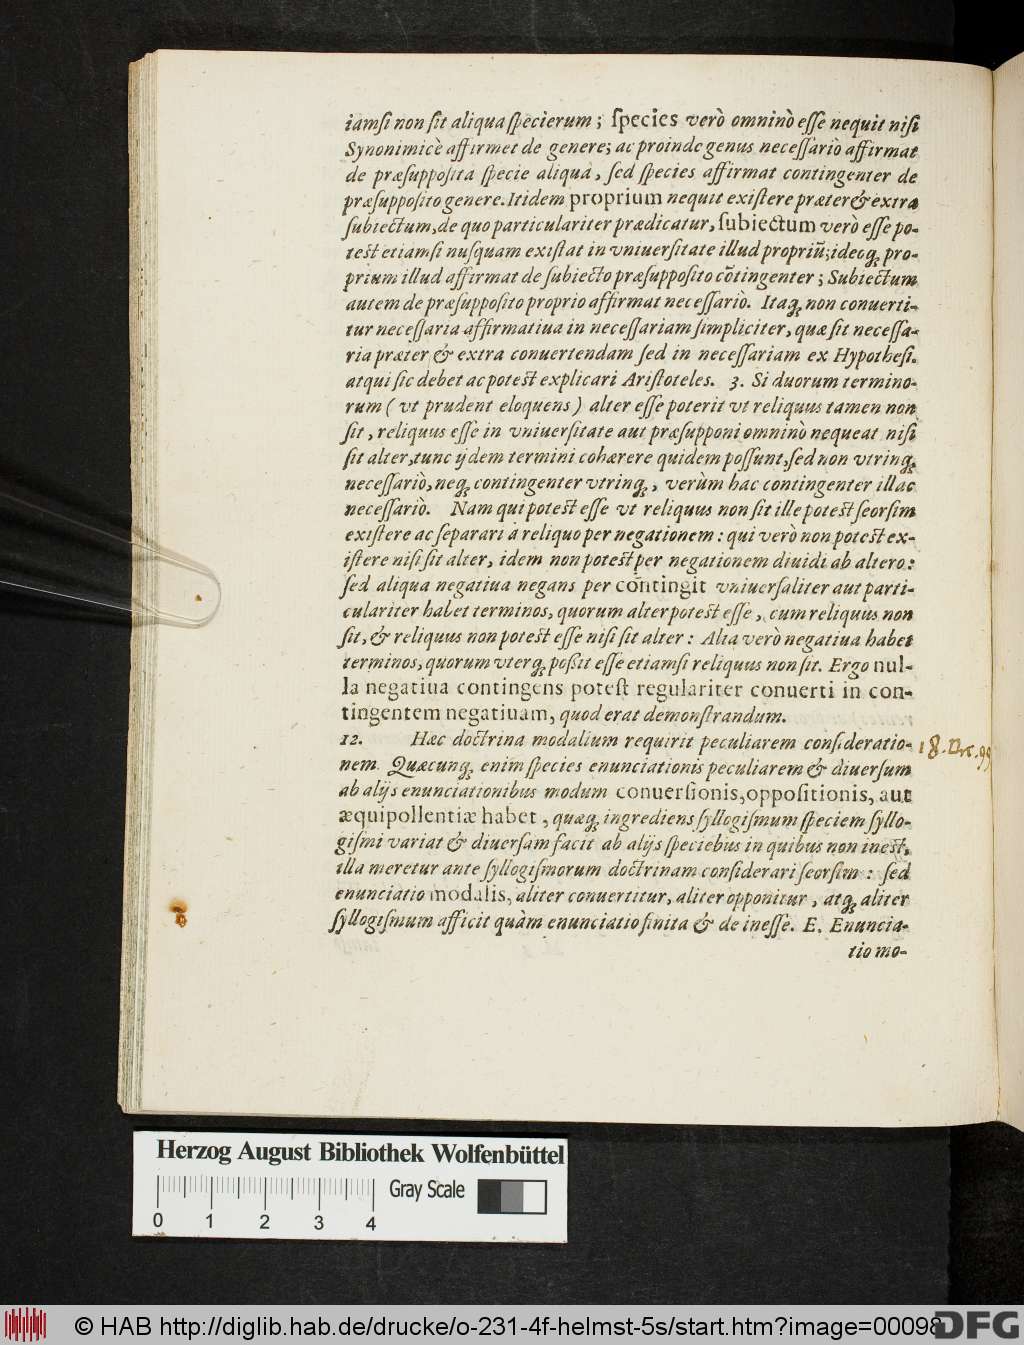 iamsi non sit aliqua specierum; species verò omninò esse nequit nisi
Synonimicè affirmet de genere; ac proinde genus necessariò affirmat
de præsupposita specie aliqua, sed species affirmat contingenter de
præsupposito genere. Itidem proprium nequit existere præter & extra
subiectum, de quo particulariter prædicatur, subiectum verò esse po-
test etiamsi nusquam existat in vniuersitate illud propriũ; ideoq́; pro-
prium illud affirmat de subiecto præsupposito cõtingenter; Subiectum
autem de præsupposito proprio affirmat necessariò. Itaq́; non conuerti-
tur necessaria affirmatiua in necessariam simpliciter, quæ sit necessa-
ria præter & extra conuertendam sed in necessariam ex Hypothesi.
atqui sic debet ac potest explicari Aristoteles. 3. Si duorum termino-
rum (vt prudent eloquens) alter esse poterit vt reliquus tamen non
sit, reliquus esse in vniuersitate aut præsupponi omninò nequeat nisi
sit alter, tunc ijdem termini cohærere quidem possunt, sed non vtrinq́;
necessariò, neq́; contingenter vtrinq́;, verùm hac contingenter illac
necessariò. Nam qui potest esse vt reliquus non sit ille potest seorsim
existere ac separari à reliquo per negationem: qui verò non potest ex-
istere nisi sit alter, idem non potest per negationem diuidi ab altero:
sed aliqua negatiua negans per contingit vniuersaliter aut parti-
culariter habet terminos, quorum alter potest esse, cum reliquus non
sit, & reliquus non potest esse nisi sit alter: Alia verò negatiua habet
terminos, quorum vterq́; possit esse etiamsi reliquus non sit. Ergo nul-
la negatiua contingens potest regulariter conuerti in con-
tingentem negatiuam, quod erat demonstrandum.
12. Hæc doctrina modalium requirit peculiarem consideratio-
18. Dec. 99
nem. Quæcunq́; enim species enunciationis peculiarem & diuersum
ab alijs enunciationibus modum conuersionis, oppositionis, aut
æquipollentiæ habet, quæq́; ingrediens syllogismum speciem syllo-
gismi variat & diuersam facit ab alijs speciebus in quibus non inest,
illa meretur ante syllogismorum doctrinam considerari seorsim: sed
enunciatio modalis, aliter conuertitur, aliter opponitur, atq́; aliter
syllogismum afficit quàm enunciatio finita & de inesse. E. Enuncia-
tio mo-
Herzog August Bibliothek Wolfenbüttel
Gray Scale
0 1 2 3 4
© HAB http://diglib.hab.de/drucke/o-231-4f-helmst-5s/start.htm?image=00098
DFG